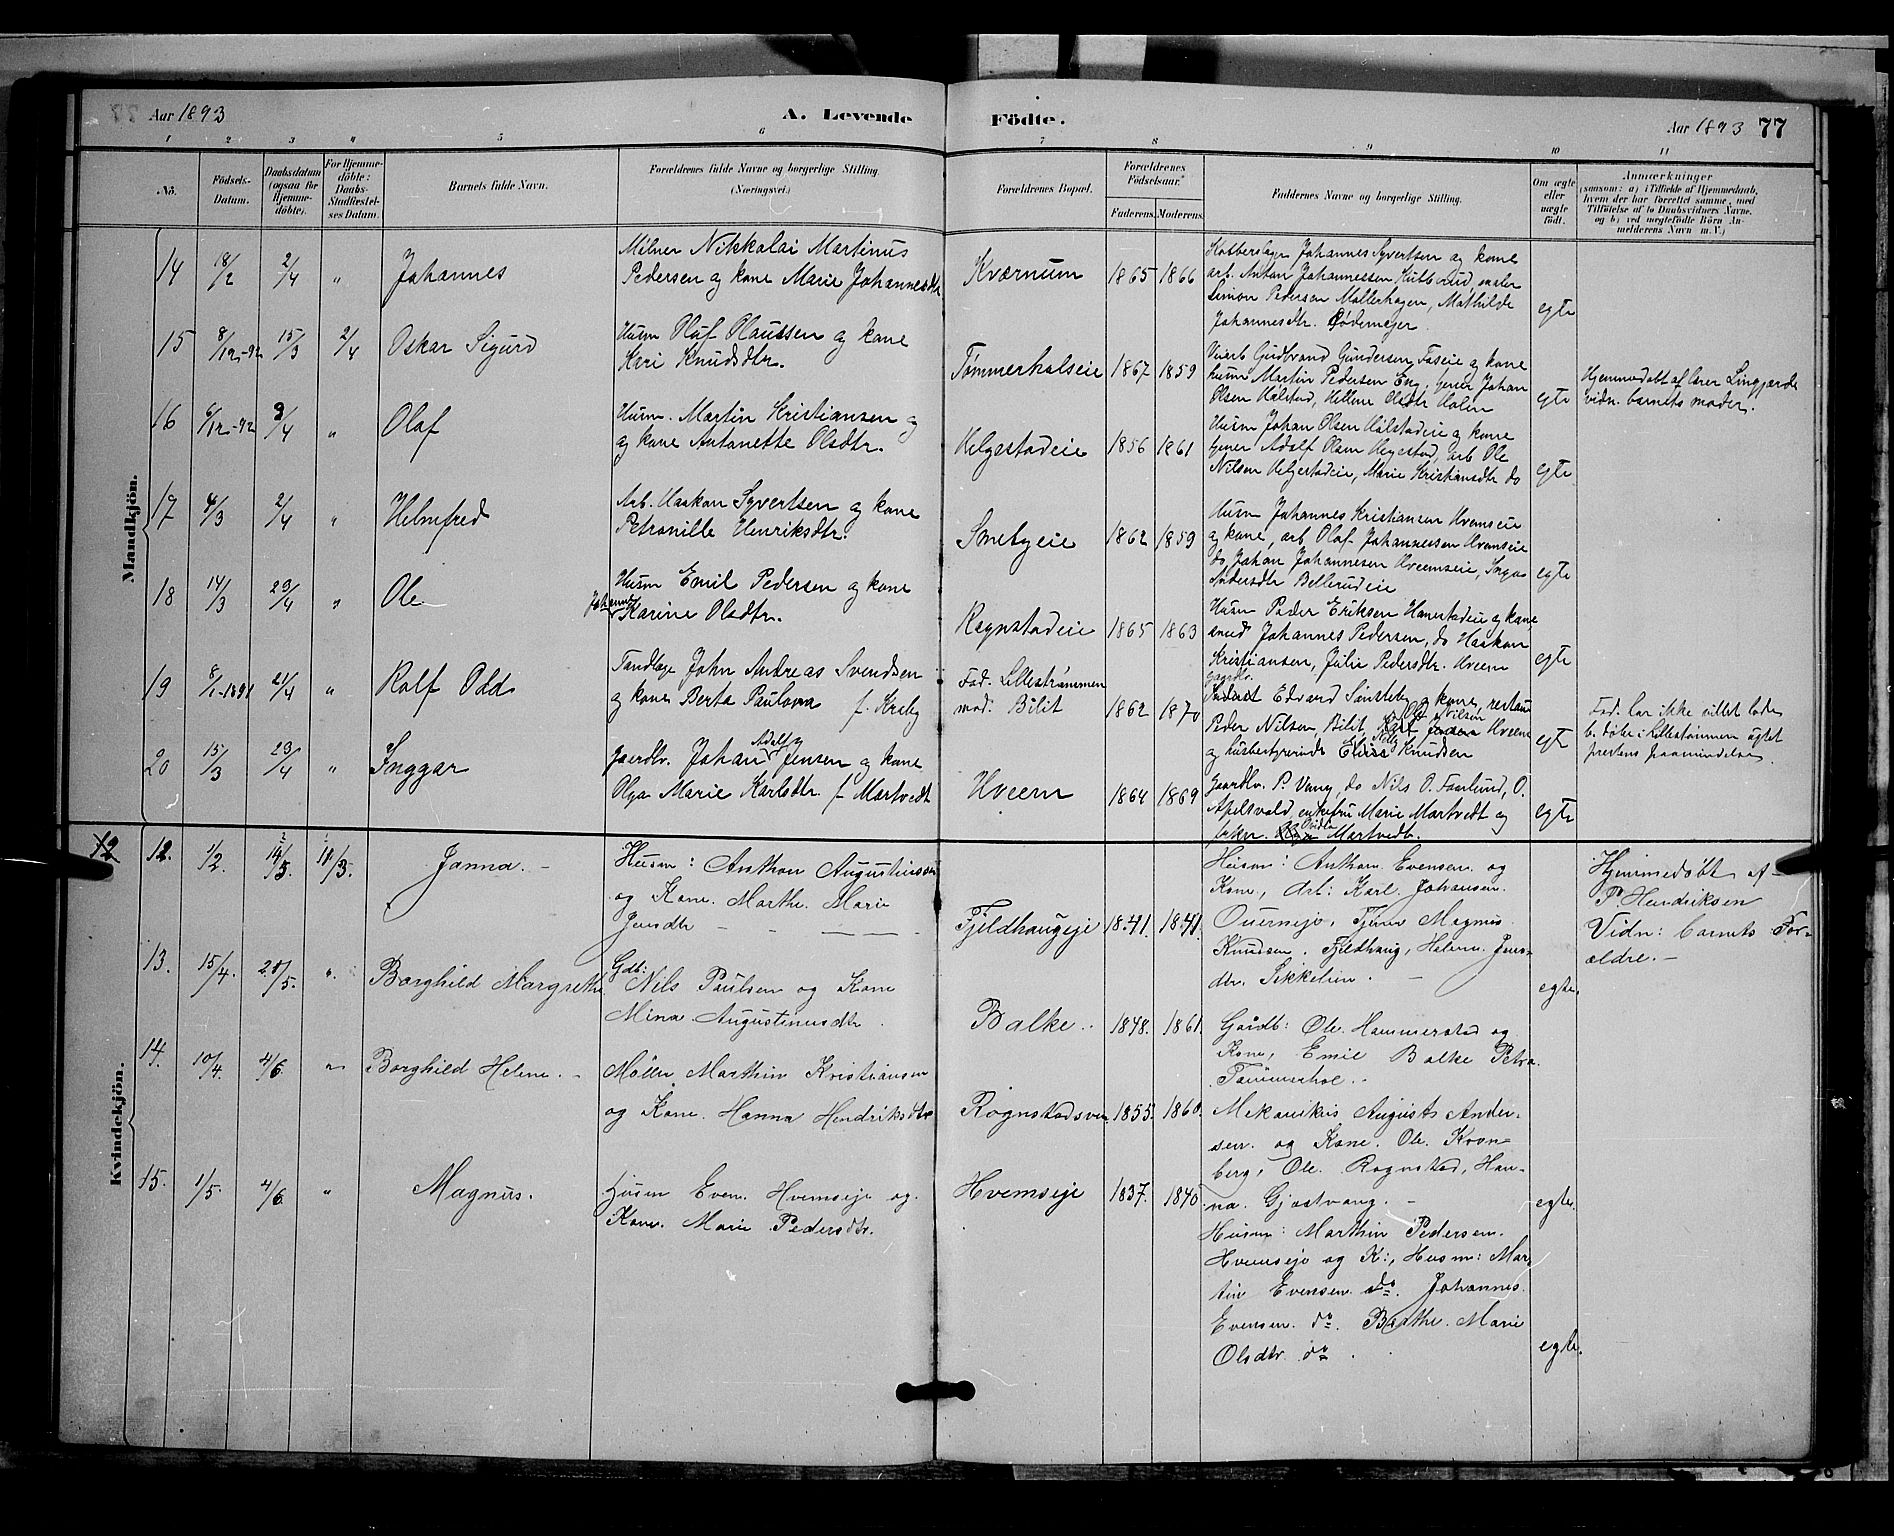 Aar 1893
A. Levende
Födte.
Aar 1893 77
1 2 3 4 5 6 7 8 9 10 11
No.
Födsels-
Datum.
Daabsdatum
(ogsaa for
Hjemme-
döbte).
For Hjemme-
döbte:
Daabs-
Stadfæstel-
ses Datum.
Barnets fulde Navn.
Forældrenes fulde Navne og borgerlige Stilling.
(Næringsvei.)
Forældrenes Bopæl.
Forældrenes
Födselsaar.
Faderens. Moderens.
Faddernes Navne og borgerlige Stilling.
Om ægte
eller
uægte
födt.
Anmærkninger
(saasom: a) i Tilfælde af Hjemmedaab,
hvem der har forrettet samme, med
Tilföielse af to Daabsvidners Navne,
og b) ved uægtefödte Börn An-
melderens Navn m. V.)
Mandkjön.
14 18/2 2/4 " Johannes
Mölner Nikkolai Martinus
Pedersen og kone Marie Johannesdtr
Kværnum 1865 1866
Johannes Syvertsen og kone
arb. Anton Johannessen maler
Simon Pedersen Møllerhagen, Mathilde
Johannesdtr.
egte
15 8/12-92 15/3 2/4 Oskar Sigurd
Husm Oluf Olaussen og kone
Kari Knudsdtr.
Tømmerholseie 1867 1859
Gudbrand Gundersen og kone
husm Martin Pedersen Eng, Johan
Olsen Hellene Olsdtr
egte
Hjemmedøbt af lærer Lingjærde
vidn. barnets moder.
16 6/12-92 9/4 " Olaf
Husm. Martin Kristiansen og
og kone Antonette Olsdtr.
Helgestadeie 1856 1861
Husm Johan Olsen og kone
Adolf Olsen arb Ole
Nilsen Helgestadeie, Marie Kristiansdtr do
egte
17 4/3 2/4 " Helmfred
Arb. Haakon Syvertsen og kone
Petronille Henriksdtr.
Smebyeie 1862 1859
Husm Johannes Kristiansen Hvemseie
og kone, arb Olaf Johannessen Hvemseie
do Johan Johannesen Hveemseie, Inga
Andersdtr Bellerudeie
egte
18 14/3 23/4 " Ole
Husm Emil Pedersen og kone
Johanne
Karine Olsdtr.
Rognstadeie 1865 1863
Husm Peder Eriksen og kone
smed Johannes Pedersen, do Haakon
Kristiansen, Julie Pedersdtr. Hveem
egte
19 8/1-1891 21/4 " Rolf Odd
Tandlæge John Andreas Svendsen
og kone Berta Paulova f. Kraby
Fad. Lillestrømmen
mod. Bilit 1862 1870
Edvard og kone,
Peder Nilsen, Bilit, Hveem
og Knudsen
egte
Fad. har ikke villet lade
b. døbe i Lillestrømmen agtet
prestens paamindelse
20 15/3 23/4 " Inggar
Adolf
Gaardbr. Johan Jensen og kone
Olga Marie Karlsdtr. f. Martvedt
Hveem 1864 1869
Gaardbr. P. Vang, do Nils O. Faarlund, O.
Apelsvold, enkefru Marie Martvedt og
Martvedt.
egte
Kvindekjön.
12 12. 1/2 14/5 11/3. Janna. –
Husm: Anthon Augustinussen
og Kone. Marthe. Marie
Jensdtr – – – –
Fjeldhaugeje 1841. 1841.
Husm: Anthon Evensen og
Kone, Arb: Karl Johansen.
Magnus
Knudsen. Fjeldhaug, Helene Jens-
dtr. Sikkelien. –
Hjemmedøbt af
P. Hendriksen
Vidn: barnets For-
ældre. –
egte.
13. 15/4. 21/5. " Borghild Margrethe
Gdb:
Nils Paulsen og Kone
Mina Augustinusdtr.
Balke.. 1848. 1861.
Gårdb: Ole. Hammerstad og
Kone, Emil Balke Petra
Tømmerhol.
14. 10/4. 4/6 " Borghild Helene. –
Møller Marthin Kristiansen
og Kone. Hanna Hendriksdtr
Rognstadsven 1855. 1860.
Mekanikus Augusts Ander-
sen. og Kone. Ole. Kron-
berg, Ole. Rognstad, Han-
na. Gjøstvang. –
egte.
15. 1/5. 4/6 " Magnus.
Husm Even. Hvemseje og
Kone. Marie Pedersdtr.
Hvemseje 1837. 1840.
Husm: Marthin Pedersen.
Hvemseje og K:, Husm: Mar-
tin Evensen. do. Johannes.
Evensen. do. Marthe. Marie
Olsdtr. do .
egte.